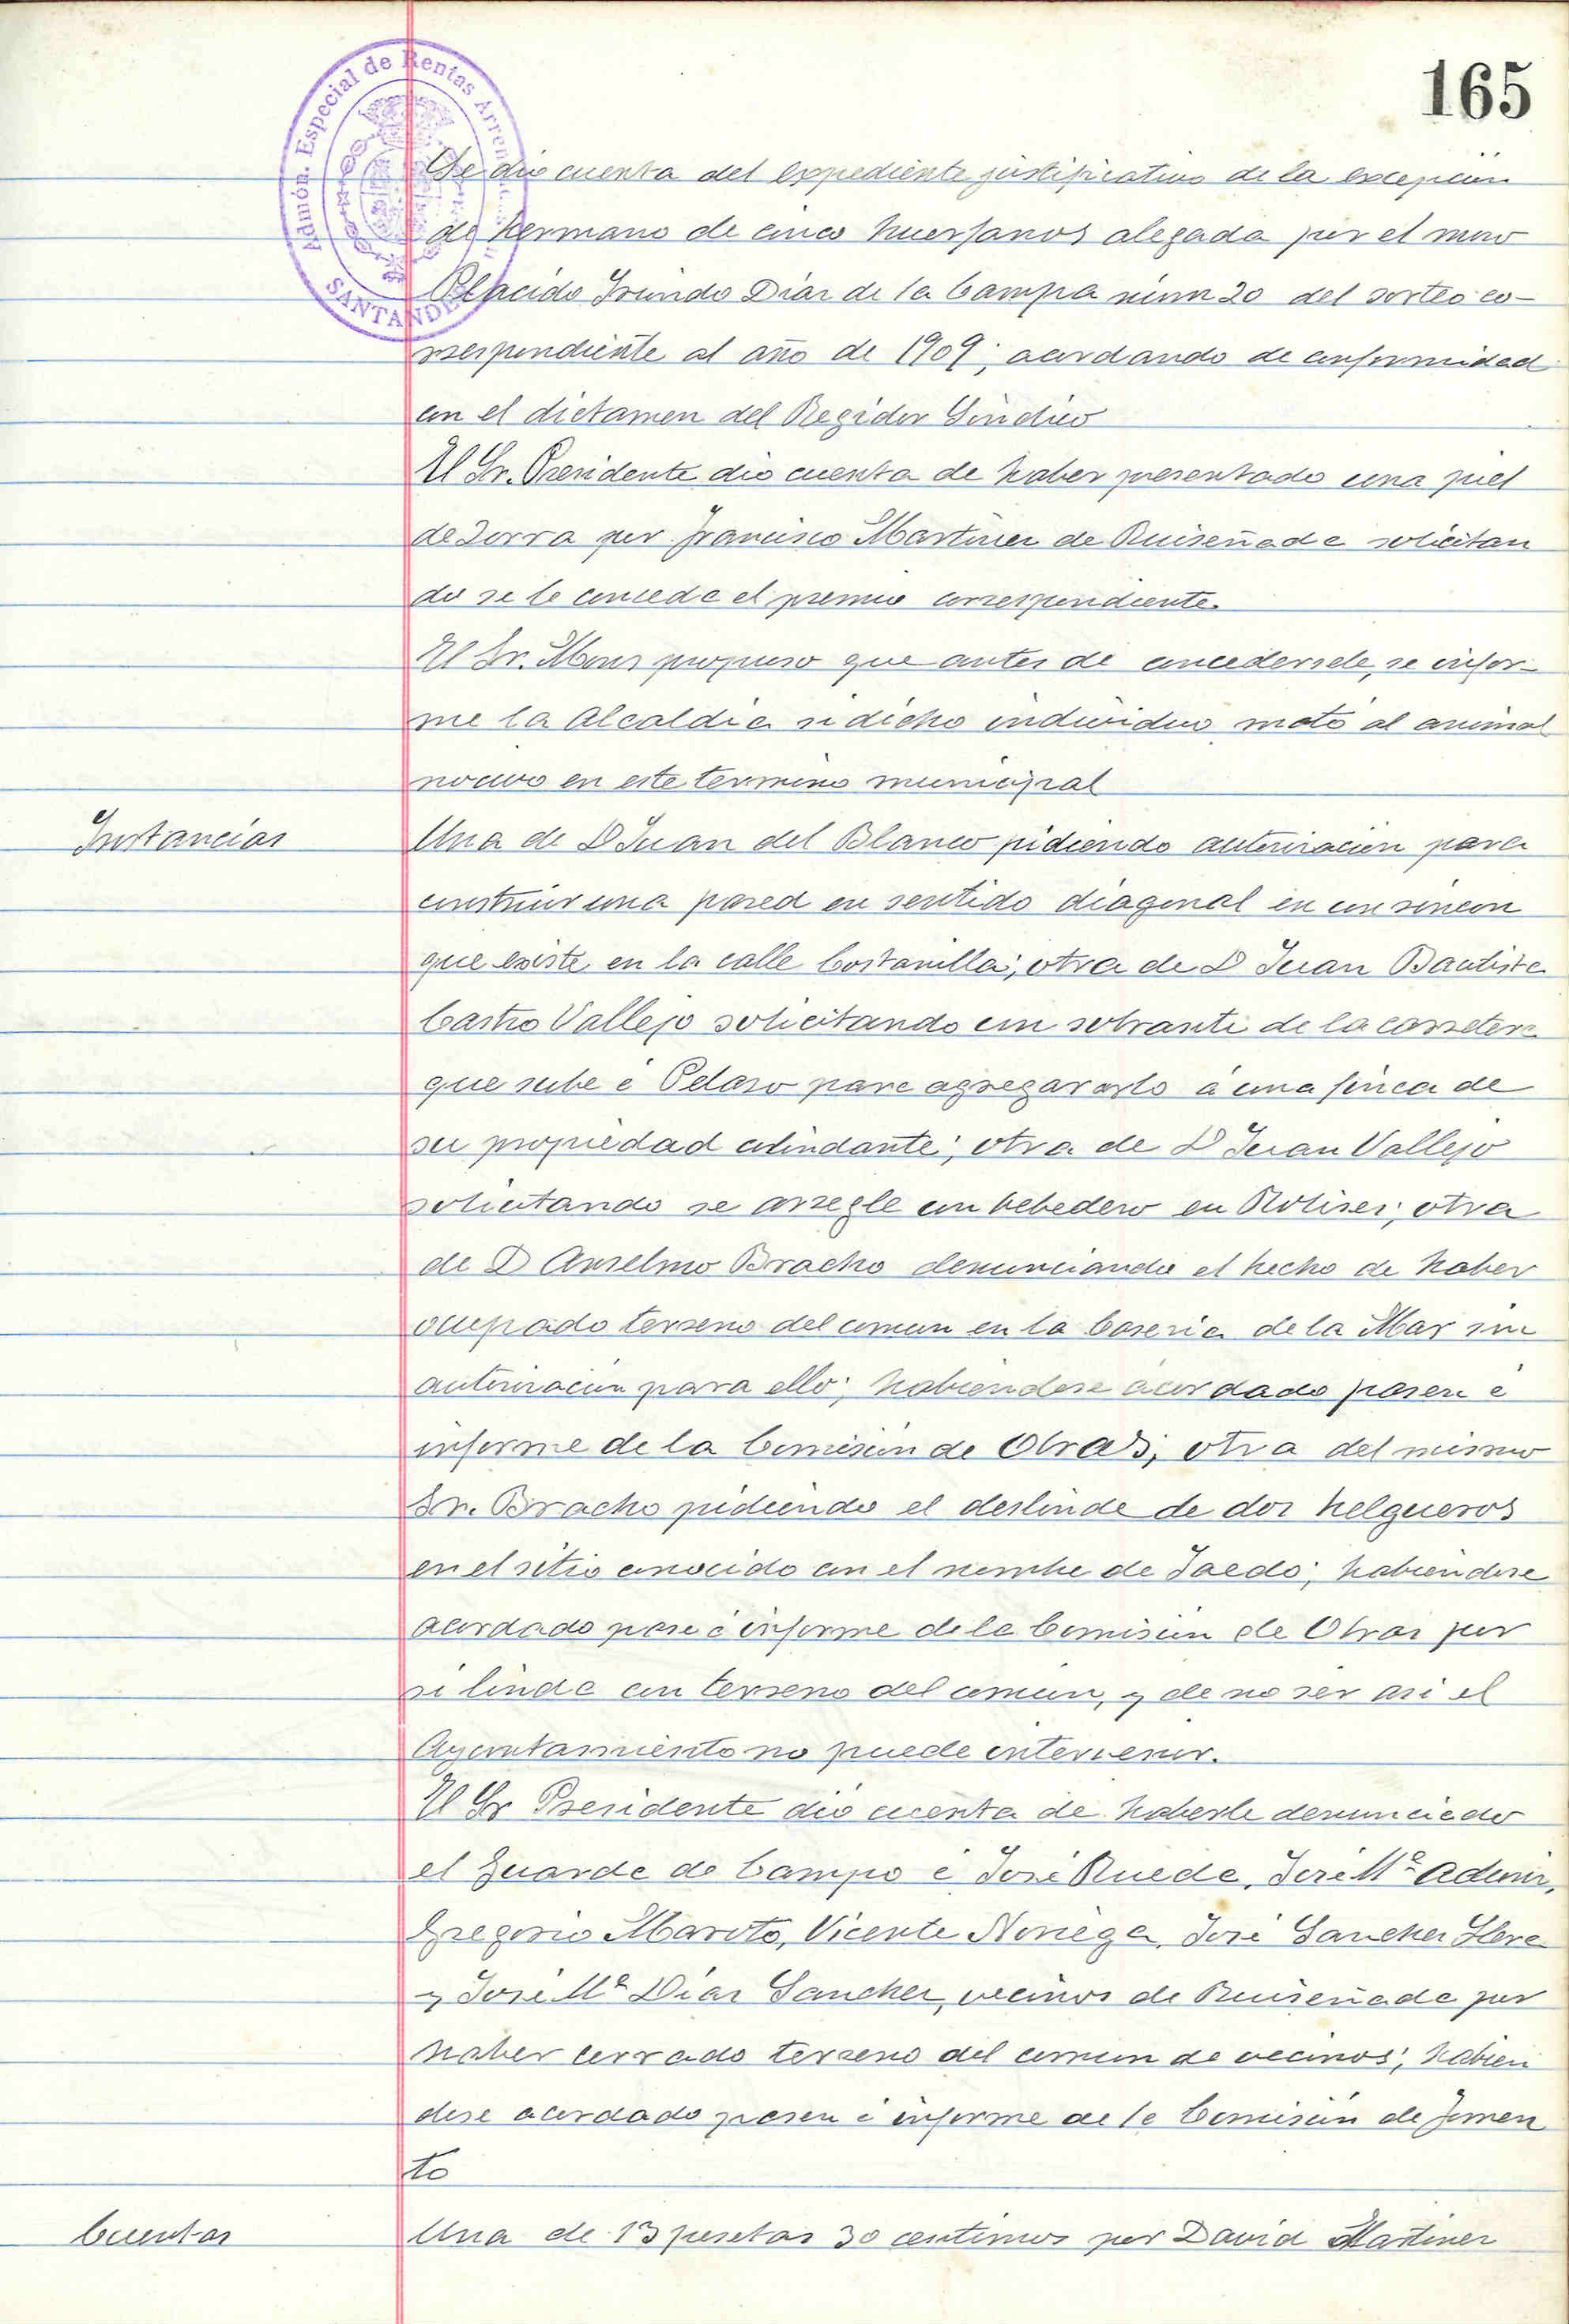 165
Admón. Especial de Rentas Arren
SANTANDER
Se dio cuenta del expediente justificativo de la excepción
de hermano de cinco huerfanos alegada por el mozo
Placido Diaz de la Campa núm 20 del sorteo co-
rrespondiente al año de 1909; acordando de conformidad
con el dictamen del Regidor Síndico
El Sr. Presidente dio cuenta de haber presentado una piel
de zorra por Francisco Martinez de Ruiseñada solicitan
do se le conceda el premio correspondiente.
El Sr. Mons propuso que antes de concedersele, se infor-
me la Alcaldia si dicho individuo mató al animal
nocivo en este termino municipal
Instancias
Una de D Juan del Blanco pidiendo autorizacion para
construir una pared en sentido diagonal en un rincon
que existe en la calle Costanilla; otra de D Juan Bautista
Castro Vallejo solicitando un sobrante de la carretera
que sube á Pelazo para á una finca de
su propiedad colindante; otra de D Juan Vallejo
solicitando se arregle un bebedero en otra
de D Anselmo Bracho denunciando el hecho de haber
ocupado terreno del comun en la Caseria de la Mar sin
autorizacion para ello; habiendose acordado pasen á
informe de la Comisión de Obras; otra del mismo
Sr. Bracho pidiendo el deslinde de dos helgueros
en el sitio conocido con el nombre de Taedo; habiendose
acordado pase á informe de la Comisión de Obras por
si linda con terreno del comun, y de no ser asi el
Ayuntamiento no puede intervenir.
El Sr Presidente dió cuenta de haberle denunciado
el Guarda de Campo á José Rueda, José Mª
Gregorio Maroto, Vicente Noriega, José Sanchez
y José Mª Diaz Sanchez, vecinos de Ruiseñada por
haber cerrado terreno del comun de vecinos; habien
dose acordado pasen á informe de la Comisión de Fomen
to
Cuentas
Una de 13 pesetas 30 centimos por David Martinez